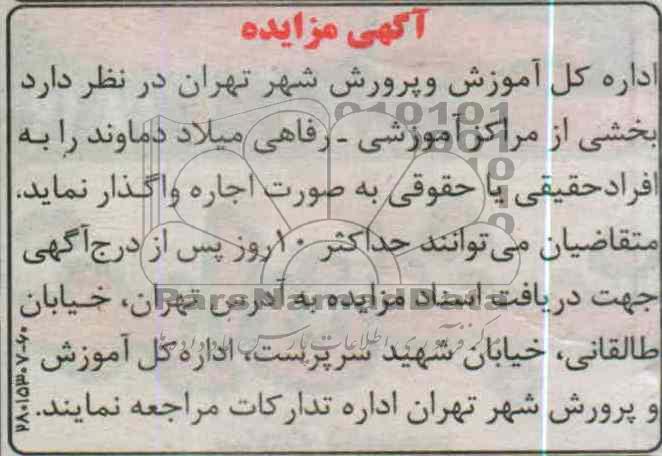 آگهی مزایده
اداره کل آموزش وپرورش شهر تهران در نظر دارد
بخشی از مراکز آموزشی ـ رفاهی میلاد دماوند را به
افرادحقیقی یا حقوقی به صورت اجاره واگذار نماید.
متقاضیان می‌توانند حداکثر ۱۰روز پس از درج آگهی
جهت دریافت اسناد مزایده به آدرس تهران، خیابان
طالقانی، خیابان شهید سرپرست، اداره کل آموزش
و پرورش شهر تهران اداره تدارکات مراجعه نمایند.
ParsNamadData